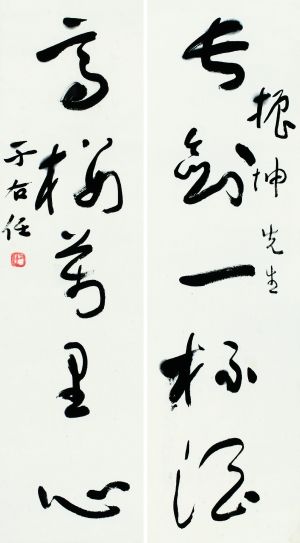 长剑一杯酒
振坤先生
高楼万里心
于右任